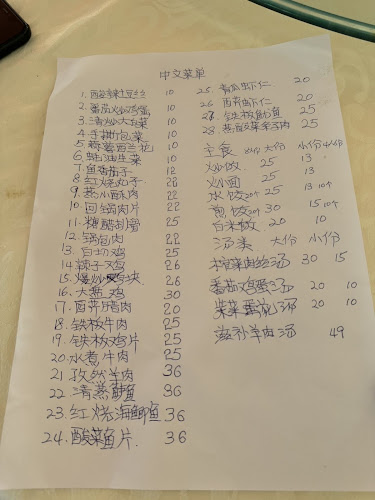 中文菜单
1. 酸辣土豆丝 10
2. 番茄炒鸡蛋 10
3. 清炒大白菜 10
4. 手撕包菜 10
5. 蒜蓉西兰花 10
6. 蚝油生菜 10
7. 鱼香茄子 12
8. 红烧丸子 22
9. 蒸小酥肉 22
10. 回锅肉片 22
11. 糖醋排骨 25
12. 锅包肉 22
13. 白切鸡 25
14. 辣子鸡 26
15. 爆炒鸡块 26
16. 大葱鸡 30
17. 西芹牛肉 20
18. 铁板牛肉 25
19. 铁板鸡片 25
20. 水煮牛肉 25
21 孜然羊肉 36
22 清蒸鲈鱼 36
23. 红烧海鲫鱼 36
24. 酸菜鱼片. 36
25. 青瓜虾仁 20
26 西芹虾仁 20
27. 铁板鱿鱼 25
28 25
主食 大份 小份
炒饭 25 13
炒面 25 13
水饺20个 25 13 10个
包饺20个 30 15 10个
白米饭 20 10
汤类 大份 小份
榨菜肉丝汤 30 15
番茄鸡蛋汤 20 10
紫菜蛋花汤 20 10
滋补羊肉汤 49